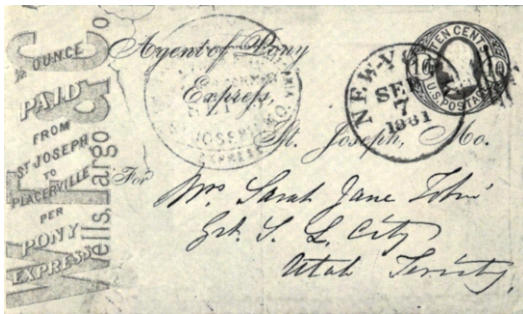 ½ OUNCE
PAID
FROM
ST JOSEPH
TO
PLACERVILLE
PER
PONY
EXPRESS
Wells, Fargo & Co.
Agent of Pony
Express,
St. Joseph, Mo.
ST JOSEPH MO.
NEW-YORK
SEP
7
1861
TEN CENTS
10 10
U.S. POSTAGE
For
Mrs Sarah Jane
Grt. S. L. City
Utah